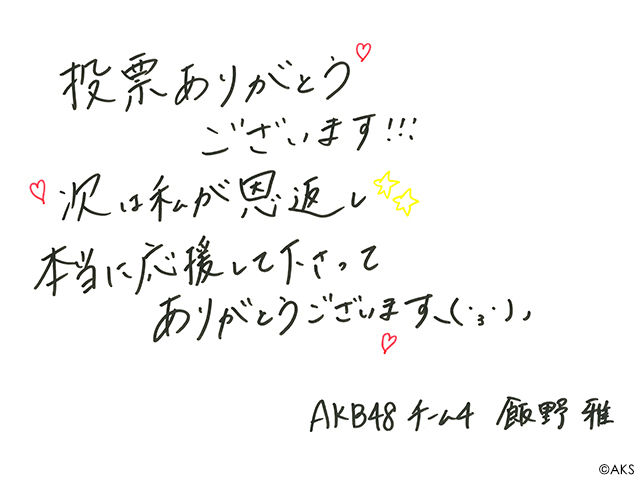 投票ありがとう♡
ございます!!!
♡次は私が恩返し☆☆
本当に応援して下さって
ありがとうございます、(·з·)、
♡
AKB48 チーム4 飯野 雅
©AKS